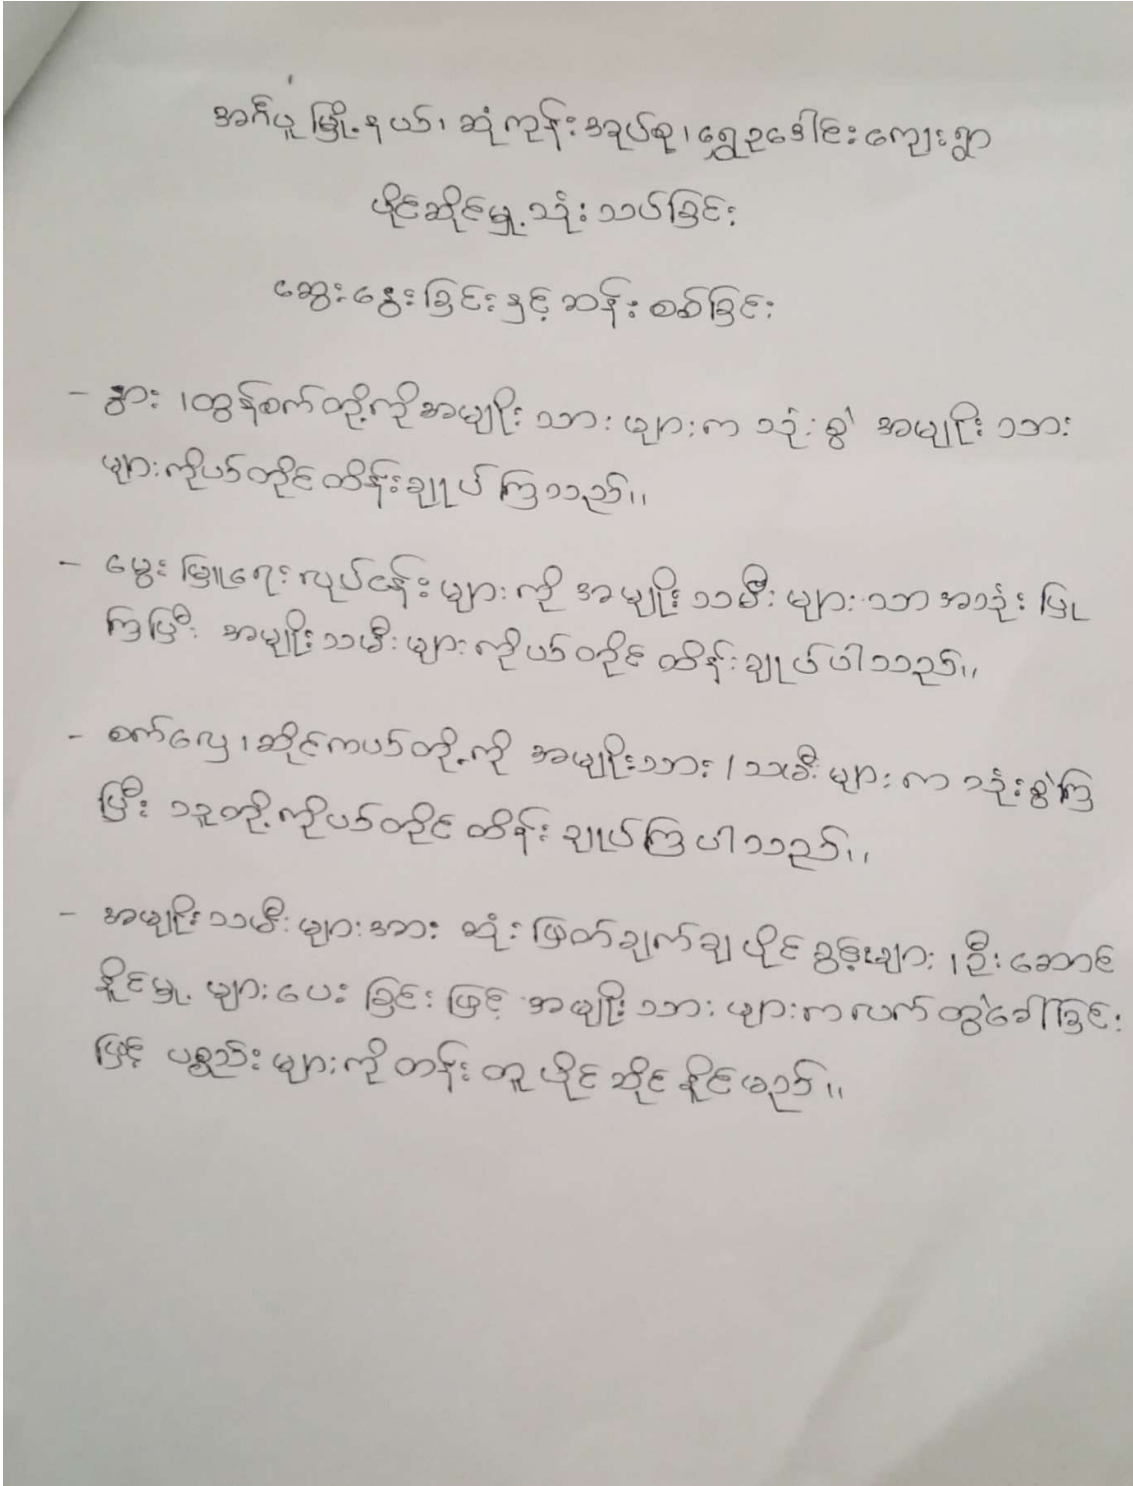 အင်္ဂပူ မြို့နယ်၊ ဆုံကုန်းအုပ်စု၊ ရွှေဥဒေါင်းကျေးရွာ
ပိုင်ဆိုင်မှု့ သုံးသပ်ခြင်း
ဆွေးနွေးခြင်းနှင့် ဆန်းစစ်ခြင်း
- နွား ၊ ထွန်စက်တို့ကိုအမျိုးသားများက သုံးစွဲ အမျိုးသား
များကိုယ်တိုင်ထိန်းချုပ်ကြသည်။
- မွေးမြူရေးလုပ်ငန်းများကို အမျိုးသမီးများသာအသုံးပြု
ကြပြီး အမျိုးသမီးများကိုယ်တိုင် ထိန်းချုပ်ပါသည်။
- စက်လှေ၊ ဆိုင်ကယ်တို့ကို အမျိုးသား / သမီးများက သုံးစွဲကြ
ပြီး သူတို့ကိုယ်တိုင် ထိန်းချုပ်ကြပါသည်။
- အမျိုးသမီးများအား ဆုံးဖြတ်ချက်ချပိုင်ခွင့်များ၊ ဦးဆောင်
နိူင်မှု့ များပေးခြင်းဖြင့် အမျိုးသားများကလက်တွဲခေါ်ခြင်း
ဖြင့် ပစ္စည်းများကိုတန်းတူပိုင်ဆိုင်နိူင်မည်။